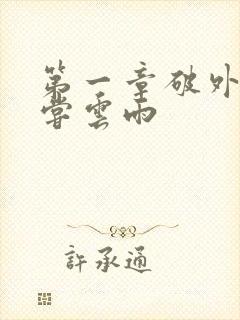 第一章破外
嘗雲雨
許承通